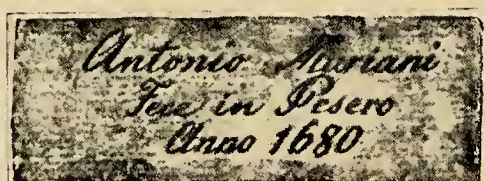 Antonio Mariani
Fece in Pesero
Anno 1680